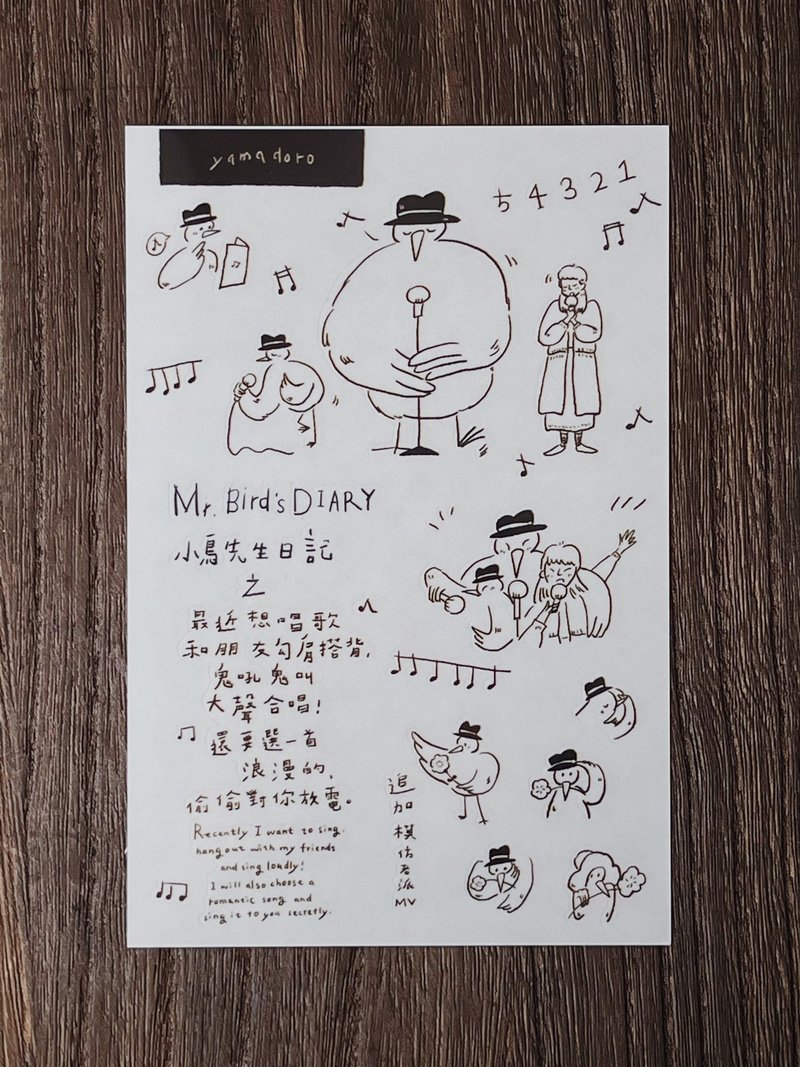 yamadoro
54321
Mr. Bird's DIARY
小鳥先生日記
之
最近想唱歌
和朋友勾肩搭背,
鬼吼鬼叫
大聲合唱!
還要選一首
浪漫的,
偷偷對你放電。
Recently I want to sing.
hang out with my friends
and sing loudly!
I will also choose a
romantic song and
sing it to you secretly.
追加模仿各派MV